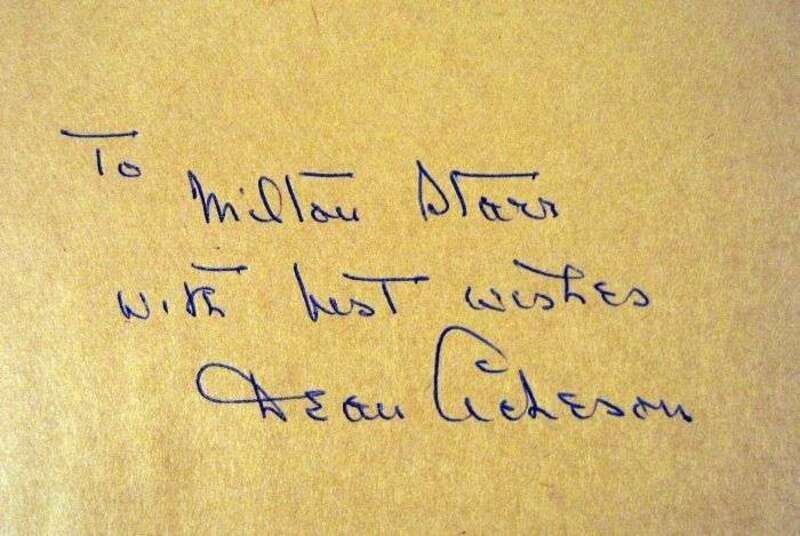 To
Milton Starr
with best wishes
Dean Acheson